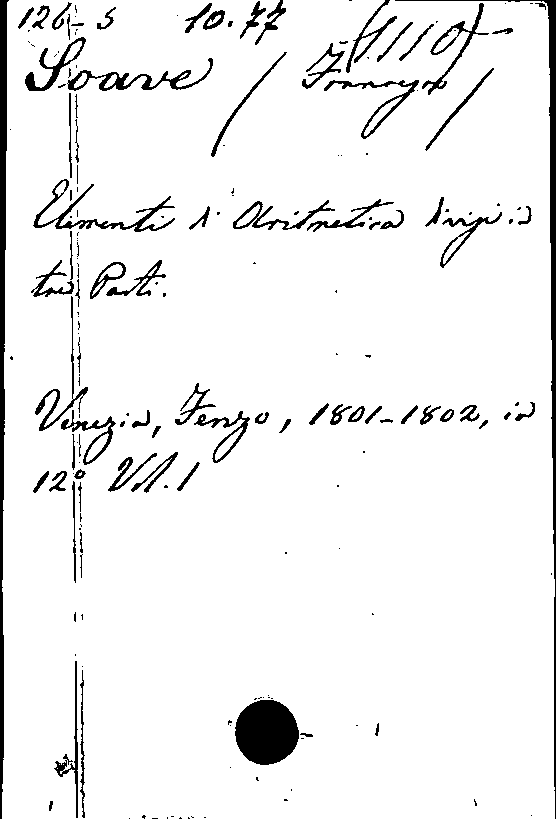 126-5 10.77 (1110)-
Soave / Francesco /
Elementi d' Aritmetica divisi in
tre Parti.
Venezia, Fenzo, 1801-1802, in
12° Vol. 1